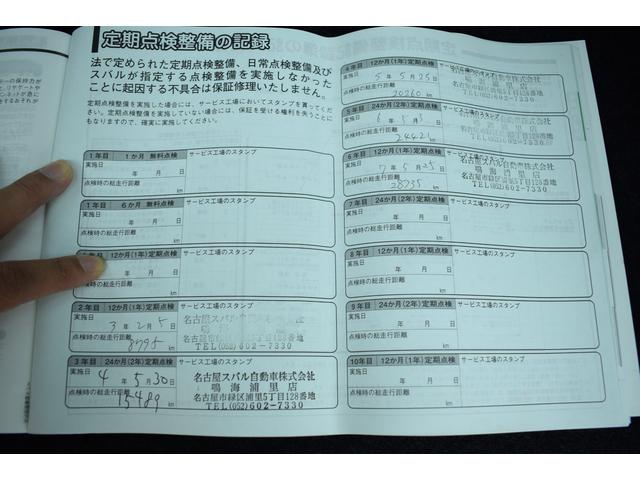 定期点検整備の記録
法で定められた定期点検整備、日常点検整備及び
スバルが指定する点検整備を実施しなかった
ことに起因する不具合は保証修理いたしません。
定期点検整備を実施した場合には、サービス工場においてスタンプを貰ってくだ
さい。定期点検整備を実施していない場合には、保証を受ける権利を失うことに
もなりますので、確実に実施してください。
1年目 1か月 無料点検 サービス工場のスタンプ
実施日
年 月 日
点検時の総走行距離
km
1年目 6か月 無料点検 サービス工場のスタンプ
実施日
年 月 日
点検時の総走行距離
km
12か月(1年)定期点検 サービス工場のスタンプ
実施日
年 月 日
点検時の総走行距離
km
2年目 12か月(1年)定期点検 サービス工場のスタンプ
実施日
3年 2月 5日
点検時の総走行距離
8795 km
名古屋スバル自動車株式会社
TEL(052)602-7330
3年目 24か月(2年)定期点検 サービス工場のスタンプ
実施日
4年 5月 30日
点検時の総走行距離
15489 km
名古屋スバル自動車株式会社
鳴海浦里店
名古屋市緑区浦里5丁目128番地
TEL(052)602-7330
4年目 12か月(1年)定期点検
実施日
5年 5月 25日
点検時の総走行距離
20260 km
名古屋市緑区浦里5丁目128番地
TEL(052)602-7330
5年目 24か月(2年)定期点検 サービス工場のスタンプ
実施日
点検時の総走行距離
24421 km
6年目 12か月(1年)定期点検 サービス工場のスタンプ
実施日
7年 5月 25日
点検時の総走行距離
28235 km
名古屋スバル自動車株式会社
鳴海浦里店
名古屋市緑区浦里5丁目128番地
TEL(052)602-7330
7年目 24か月(2年)定期点検 サービス工場のスタンプ
実施日
年 月 日
点検時の総走行距離
km
8年目 12か月(1年)定期点検 サービス工場のスタンプ
実施日
年 月 日
点検時の総走行距離
km
9年目 24か月(2年)定期点検 サービス工場のスタンプ
実施日
年 月 日
点検時の総走行距離
km
10年目 12か月(1年)定期点検 サービス工場のスタンプ
実施日
年 月 日
点検時の総走行距離
km